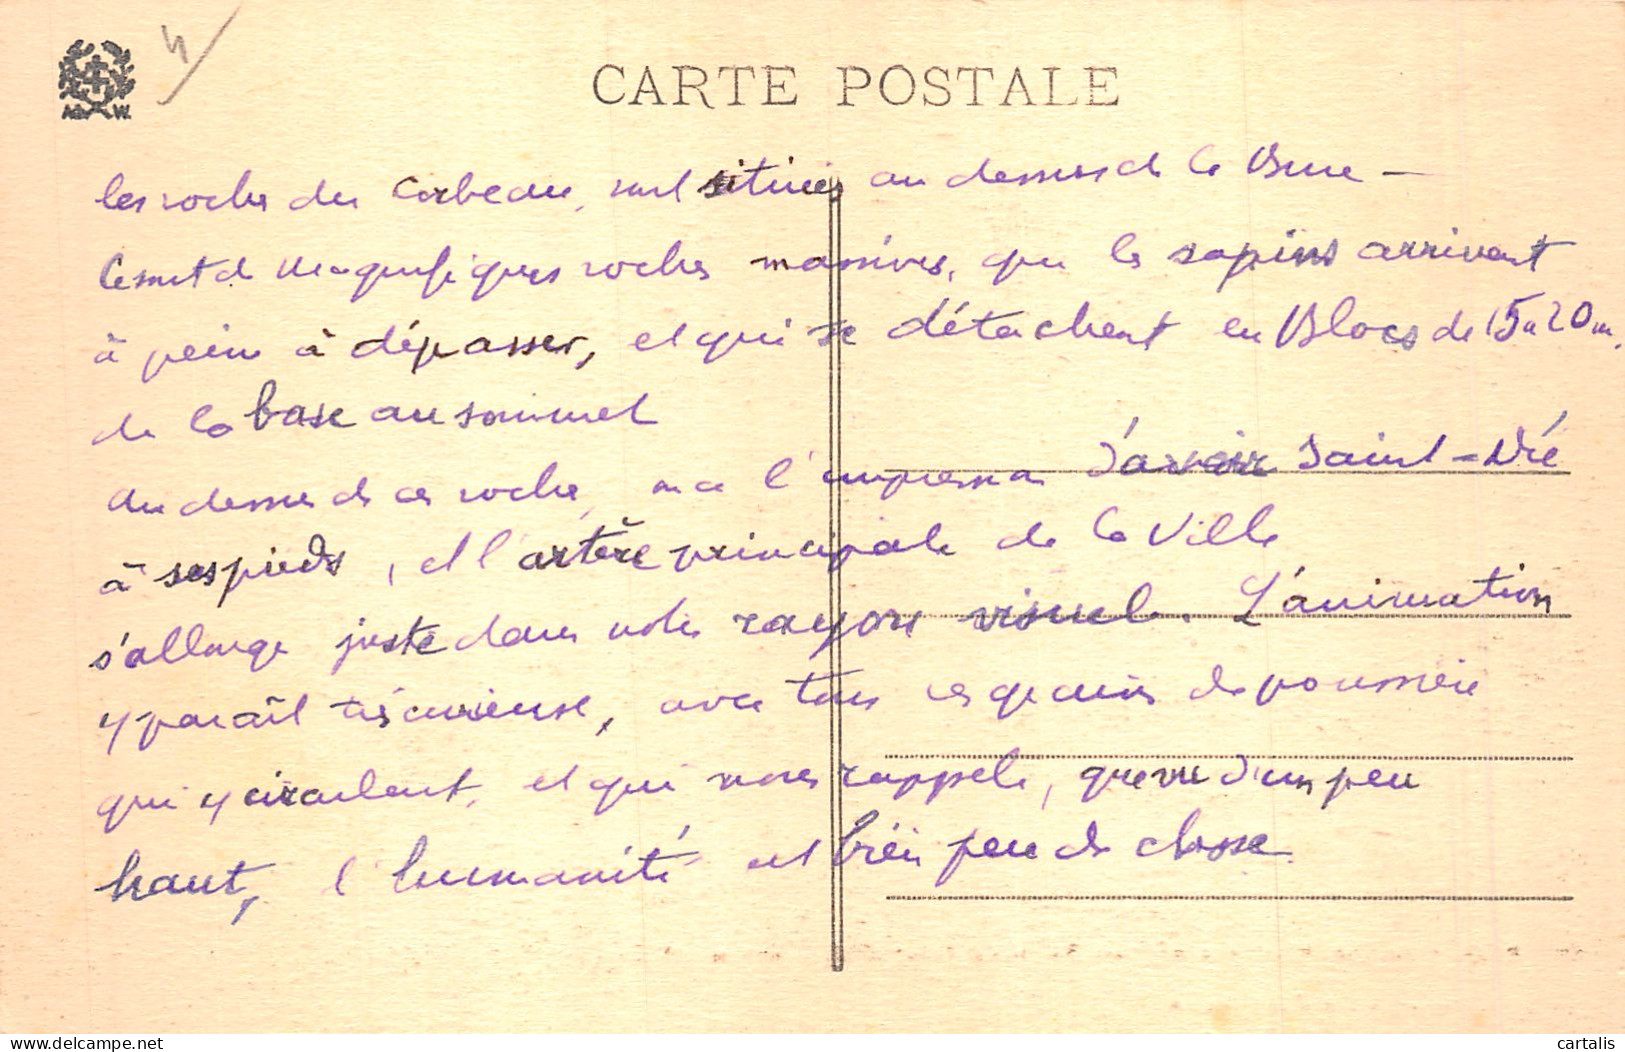 CARTE POSTALE
A. W.
4
les roches du Corbeau, sont situées au dessus de la Bure -
Ce sont de magnifiques roches massives, que les sapins arrivent
à peine à dépasser, et qui se détachent en Blocs de 15 à 20 m.
de la base au sommet
Au dessus de ces roches, on a l'impression d'avoir Saint-Dié
à ses pieds, et l'artère principale de la Ville
s'allonge juste dans notre rayon visuel. L'animation
y paraît très curieuse, avec tous ces grains de poussière
qui y circulent, et qui nous rappele, que vu d'un peu
haut, l'humanité est bien peu de chose.
www.delcampe.net
cartalis